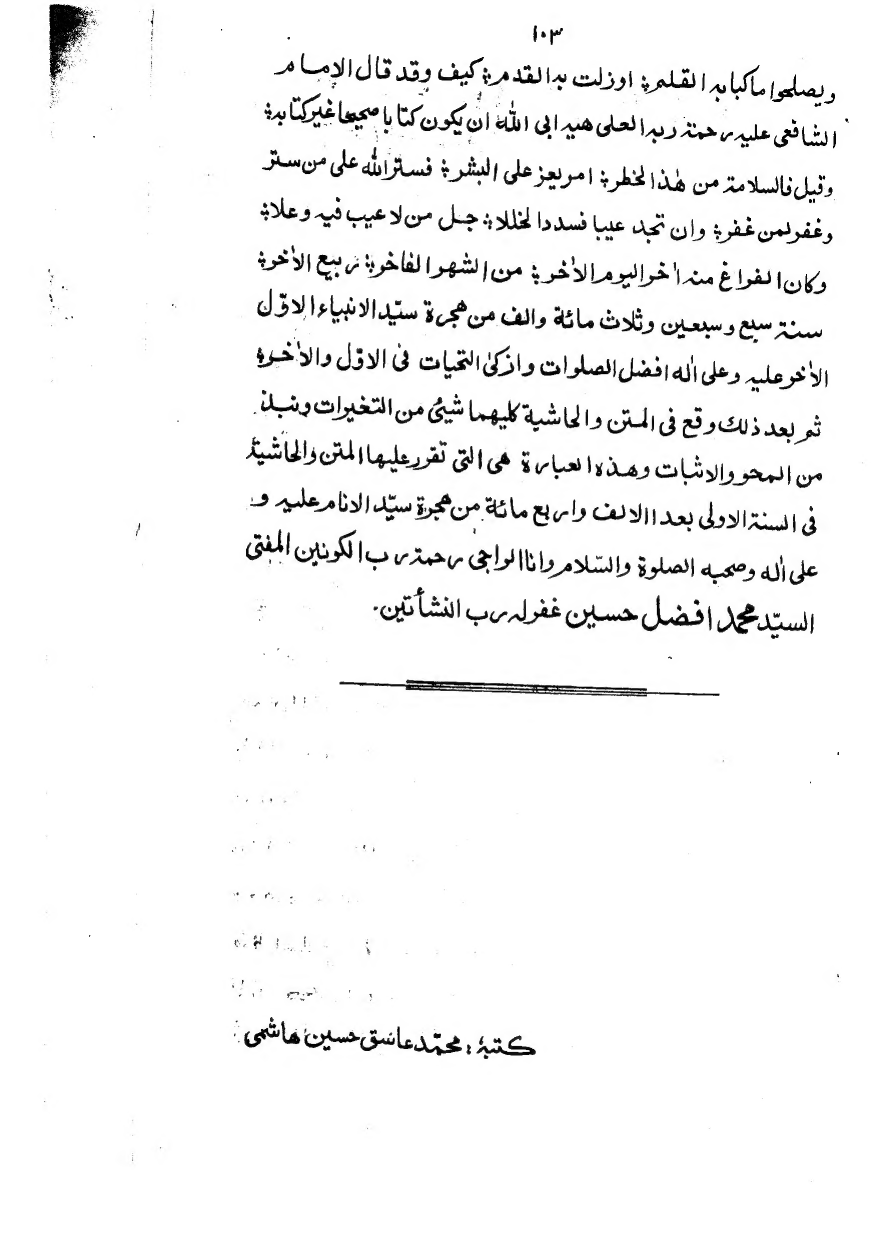 ١٠٣
ويصلحوا ما كبا به القلم؛ او زلت به القدم؛ كيف وقد قال الامام
الشافعى عليه رحمة ربه العلى هيه ابى الله ان يكون كتابا صحيحا غير كتابه؛
وقيل فالسلامة من هٰذا الخطر؛ امر يعز على البشر؛ فستر الله على من ستر
وغفر لمن غفر؛ وان تجد عيبا فسدد الخللا؛ جل من لا عيب فيه وعلا؛
وكان الفراغ منه اٰخر اليوم الاٰخر؛ من الشهر الفاخر؛ ربيع الاٰخر؛
سنة سبع وسبعين وثلاث مائة والف من هجرة سيّد الانبياء الاوّل
الاٰخر عليه وعلى اٰله افضل الصلوات وازكىٰ التحيات فى الاوّل والاٰخرة
ثم بعد ذلك وقع فى المتن والحاشية كليهما شيئ من التغيرات ونبذ
من المحو والاثبات وهذه العبارة هى التى تقرر عليها المتن والحاشية
فى السنة الاولى بعد الالف واربع مائة من هجرة سيّد الانام عليه و
على اٰله وصحبه الصلوة والسّلام وانا الراجى رحمة رب الكونين المفتى
السيّد محمد افضل حسين غفر له رب النشأتين.
كتبهٗ: محمّد عاشق حسين هاشمى